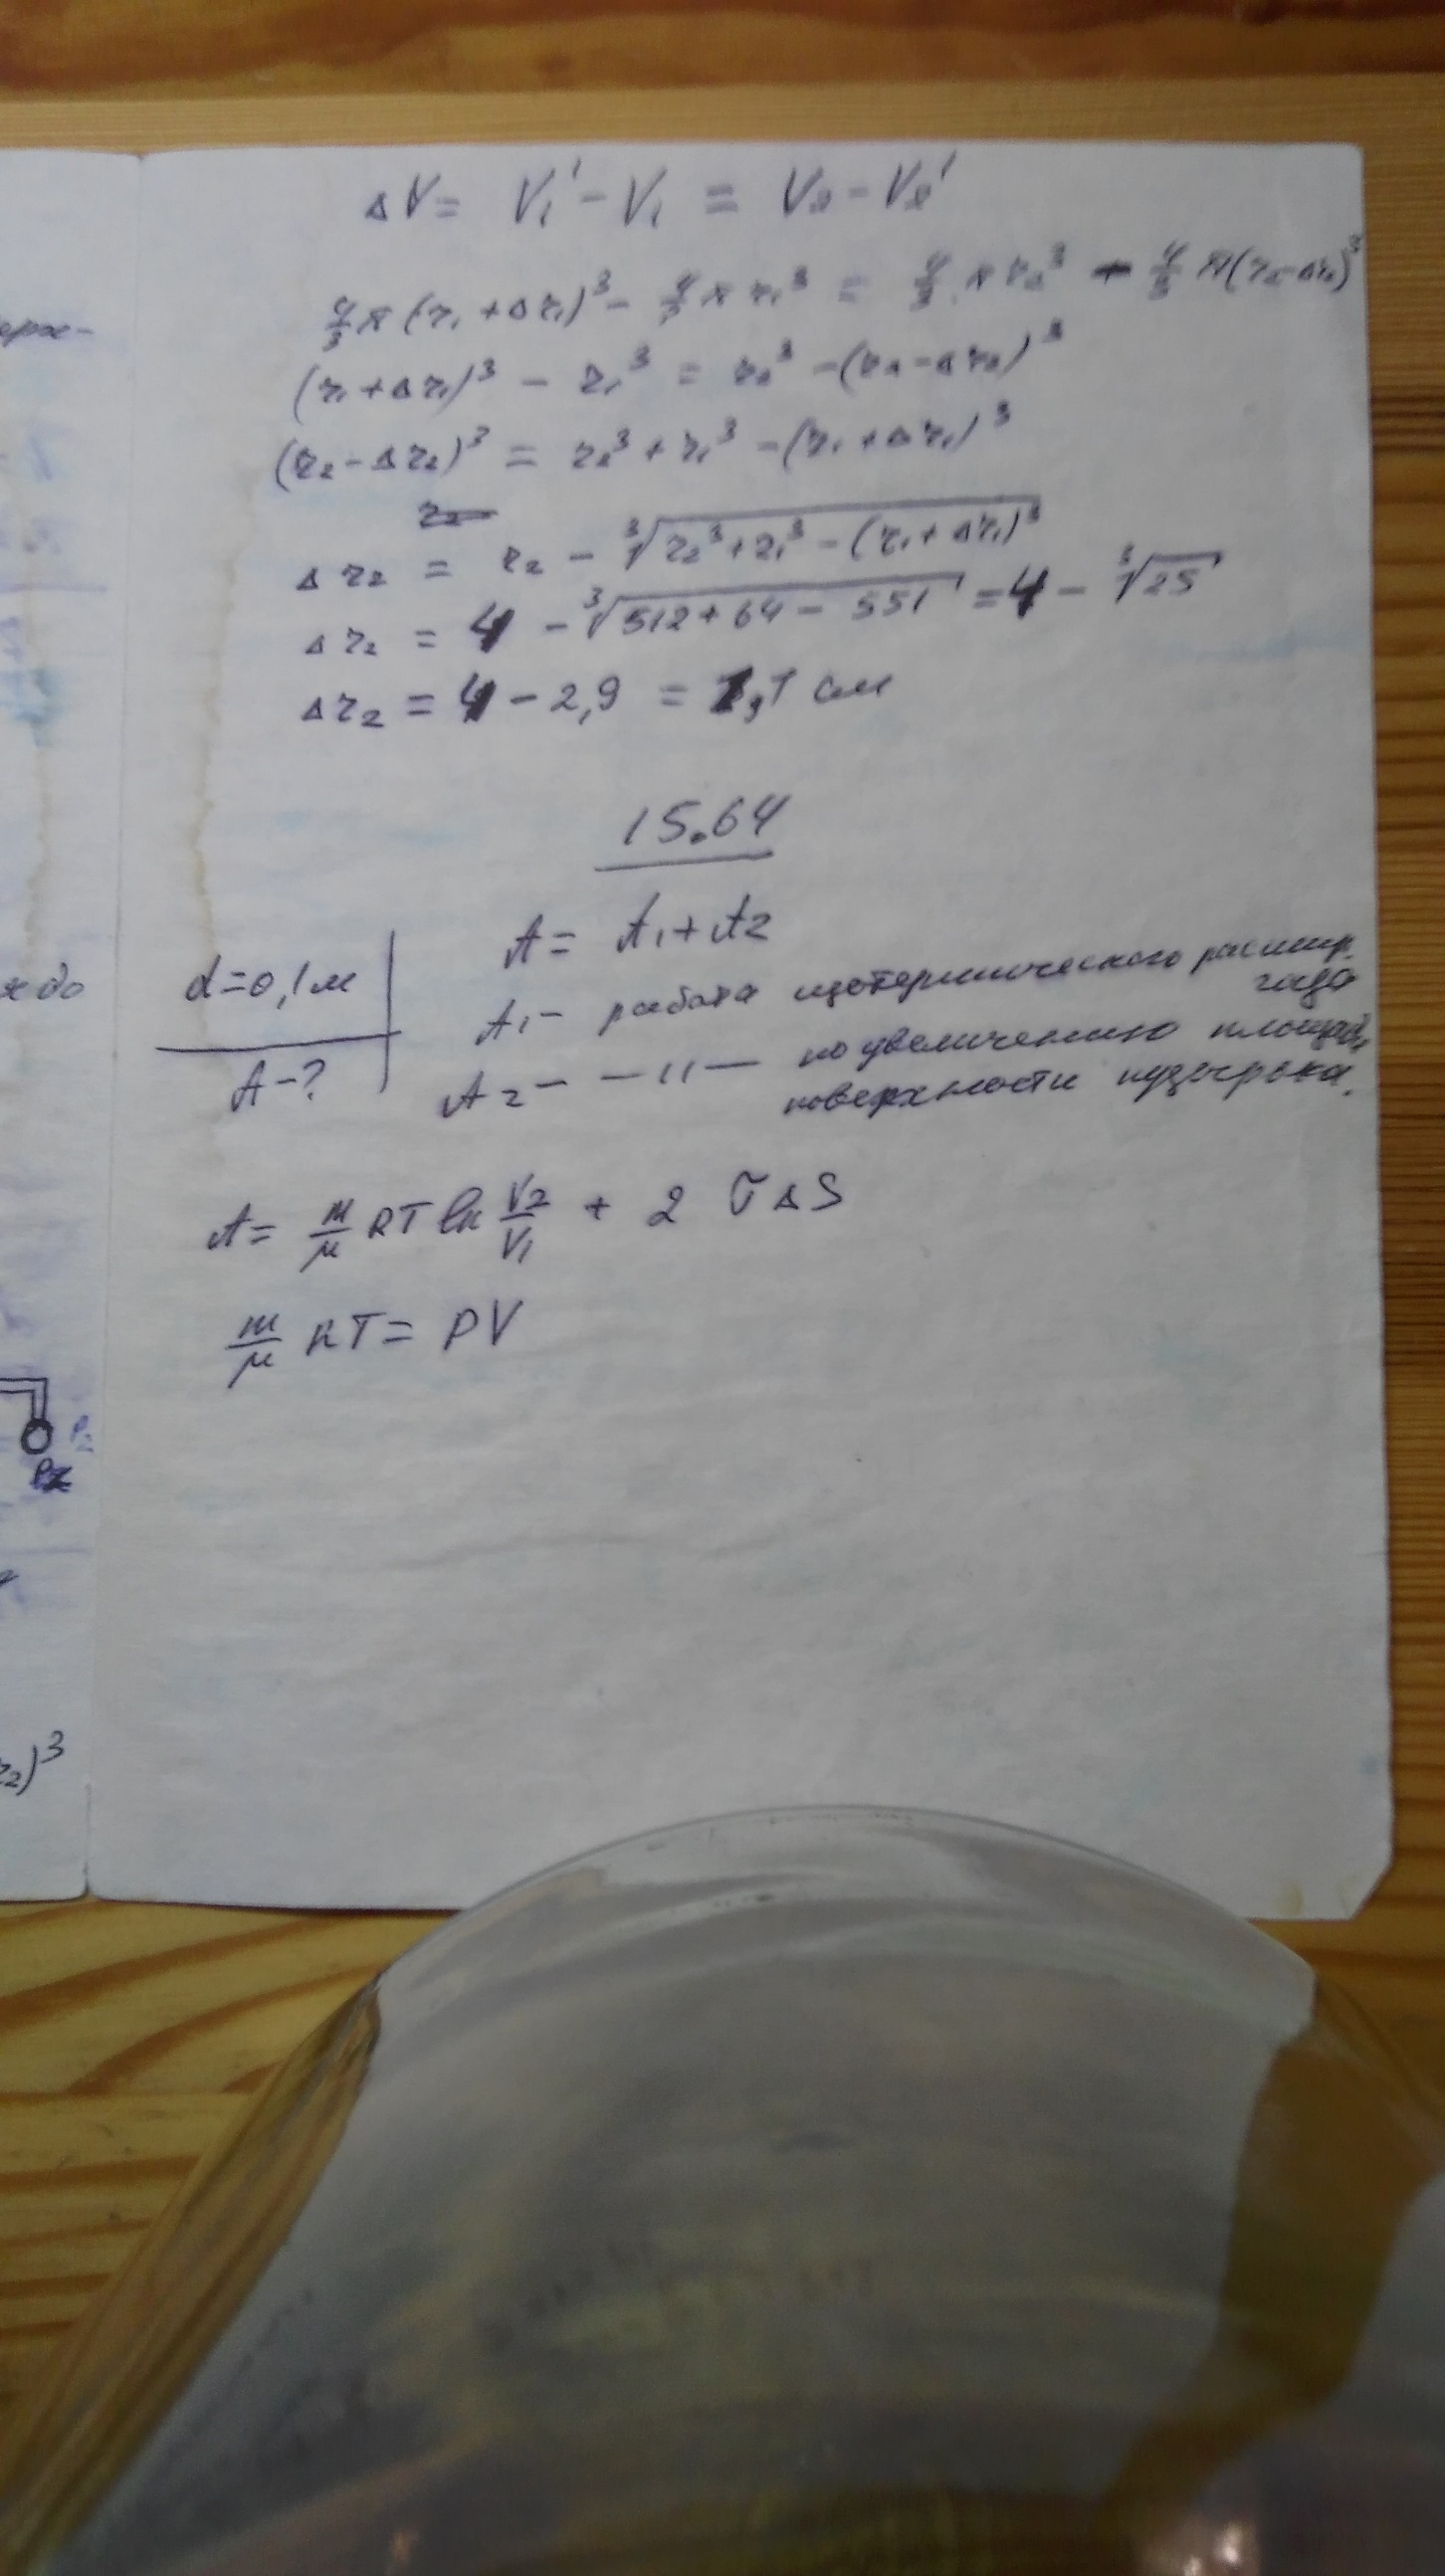 ΔV = V₁' - V₁ = V₂ - V₂'
4/3 π (r₁ + Δr₁)³ - 4/3 π r₁³ = 4/3 π r₂³ - 4/3 π (r₂ - Δr₂)³
(r₁ + Δr₁)³ - r₁³ = r₂³ - (r₂ - Δr₂)³
(r₂ - Δr₂)³ = r₂³ + r₁³ - (r₁ + Δr₁)³
Δr₂ = r₂ - ³√(r₂³ + r₁³ - (r₁ + Δr₁)³)
Δr₂ = 4 - ³√(512 + 64 - 551) = 4 - ³√25
Δr₂ = 4 - 2,9 = 1,1 см
15.64
A = A₁ + A₂
d = 0,1 м
A₁ - работа изотермического расшир.
газа
A - ?
A₂ - - " - по увеличению площади
поверхности пузырька.
A = m/μ RT ln V₂/V₁ + 2 σ ΔS
m/μ RT = PV
ерх-
до
P₂
P₂
r₂)³